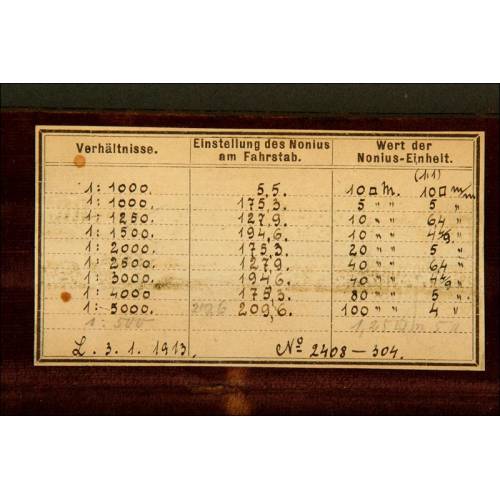 Verhältnisse. Einstellung des Nonius am Fahrstab. Wert der Nonius-Einheit.
(1:1)
1: 1000. 5.5. 10 □ M. 10 □ m/m
1: 1000. 175,3. 5 " " 5 "
1: 1250. 127,9. 10 " " 6,4 "
1: 1500. 194,6. 10 " " "
1: 2000. 175,3. 20 " " 5 "
1: 2500. 127,9. 40 " " 6,4 "
1: 3000. 194,6. 40 " " "
1: 4000. 175,3. 80 " " 5 "
1: 5000. 209,6. 100 " " 4 "
1: 500
L. 3. 1. 1913. Nº 2408 — 304.